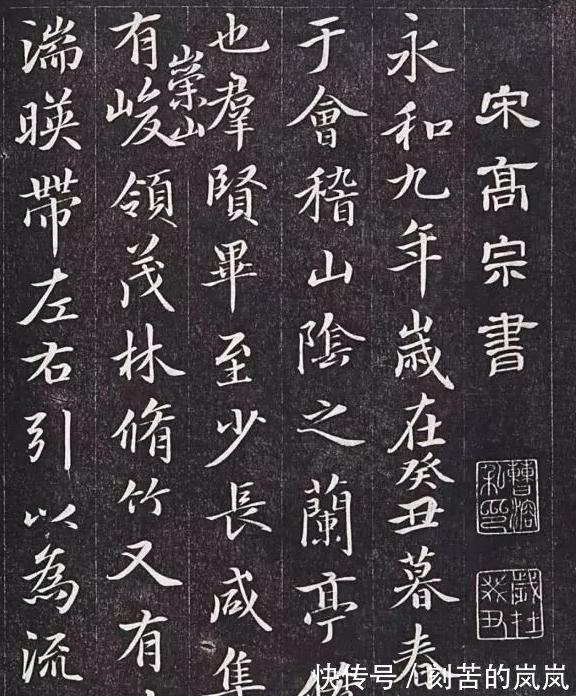 宋髙宗書
永和九年歲在癸丑暮春
于會稽山陰之蘭亭脩
也羣賢畢至少長咸集
有崇山峻領茂林脩竹又有
湍暎帶左右引以為流
曹溶私印
歲在癸丑
快传号/刻苦的岚岚